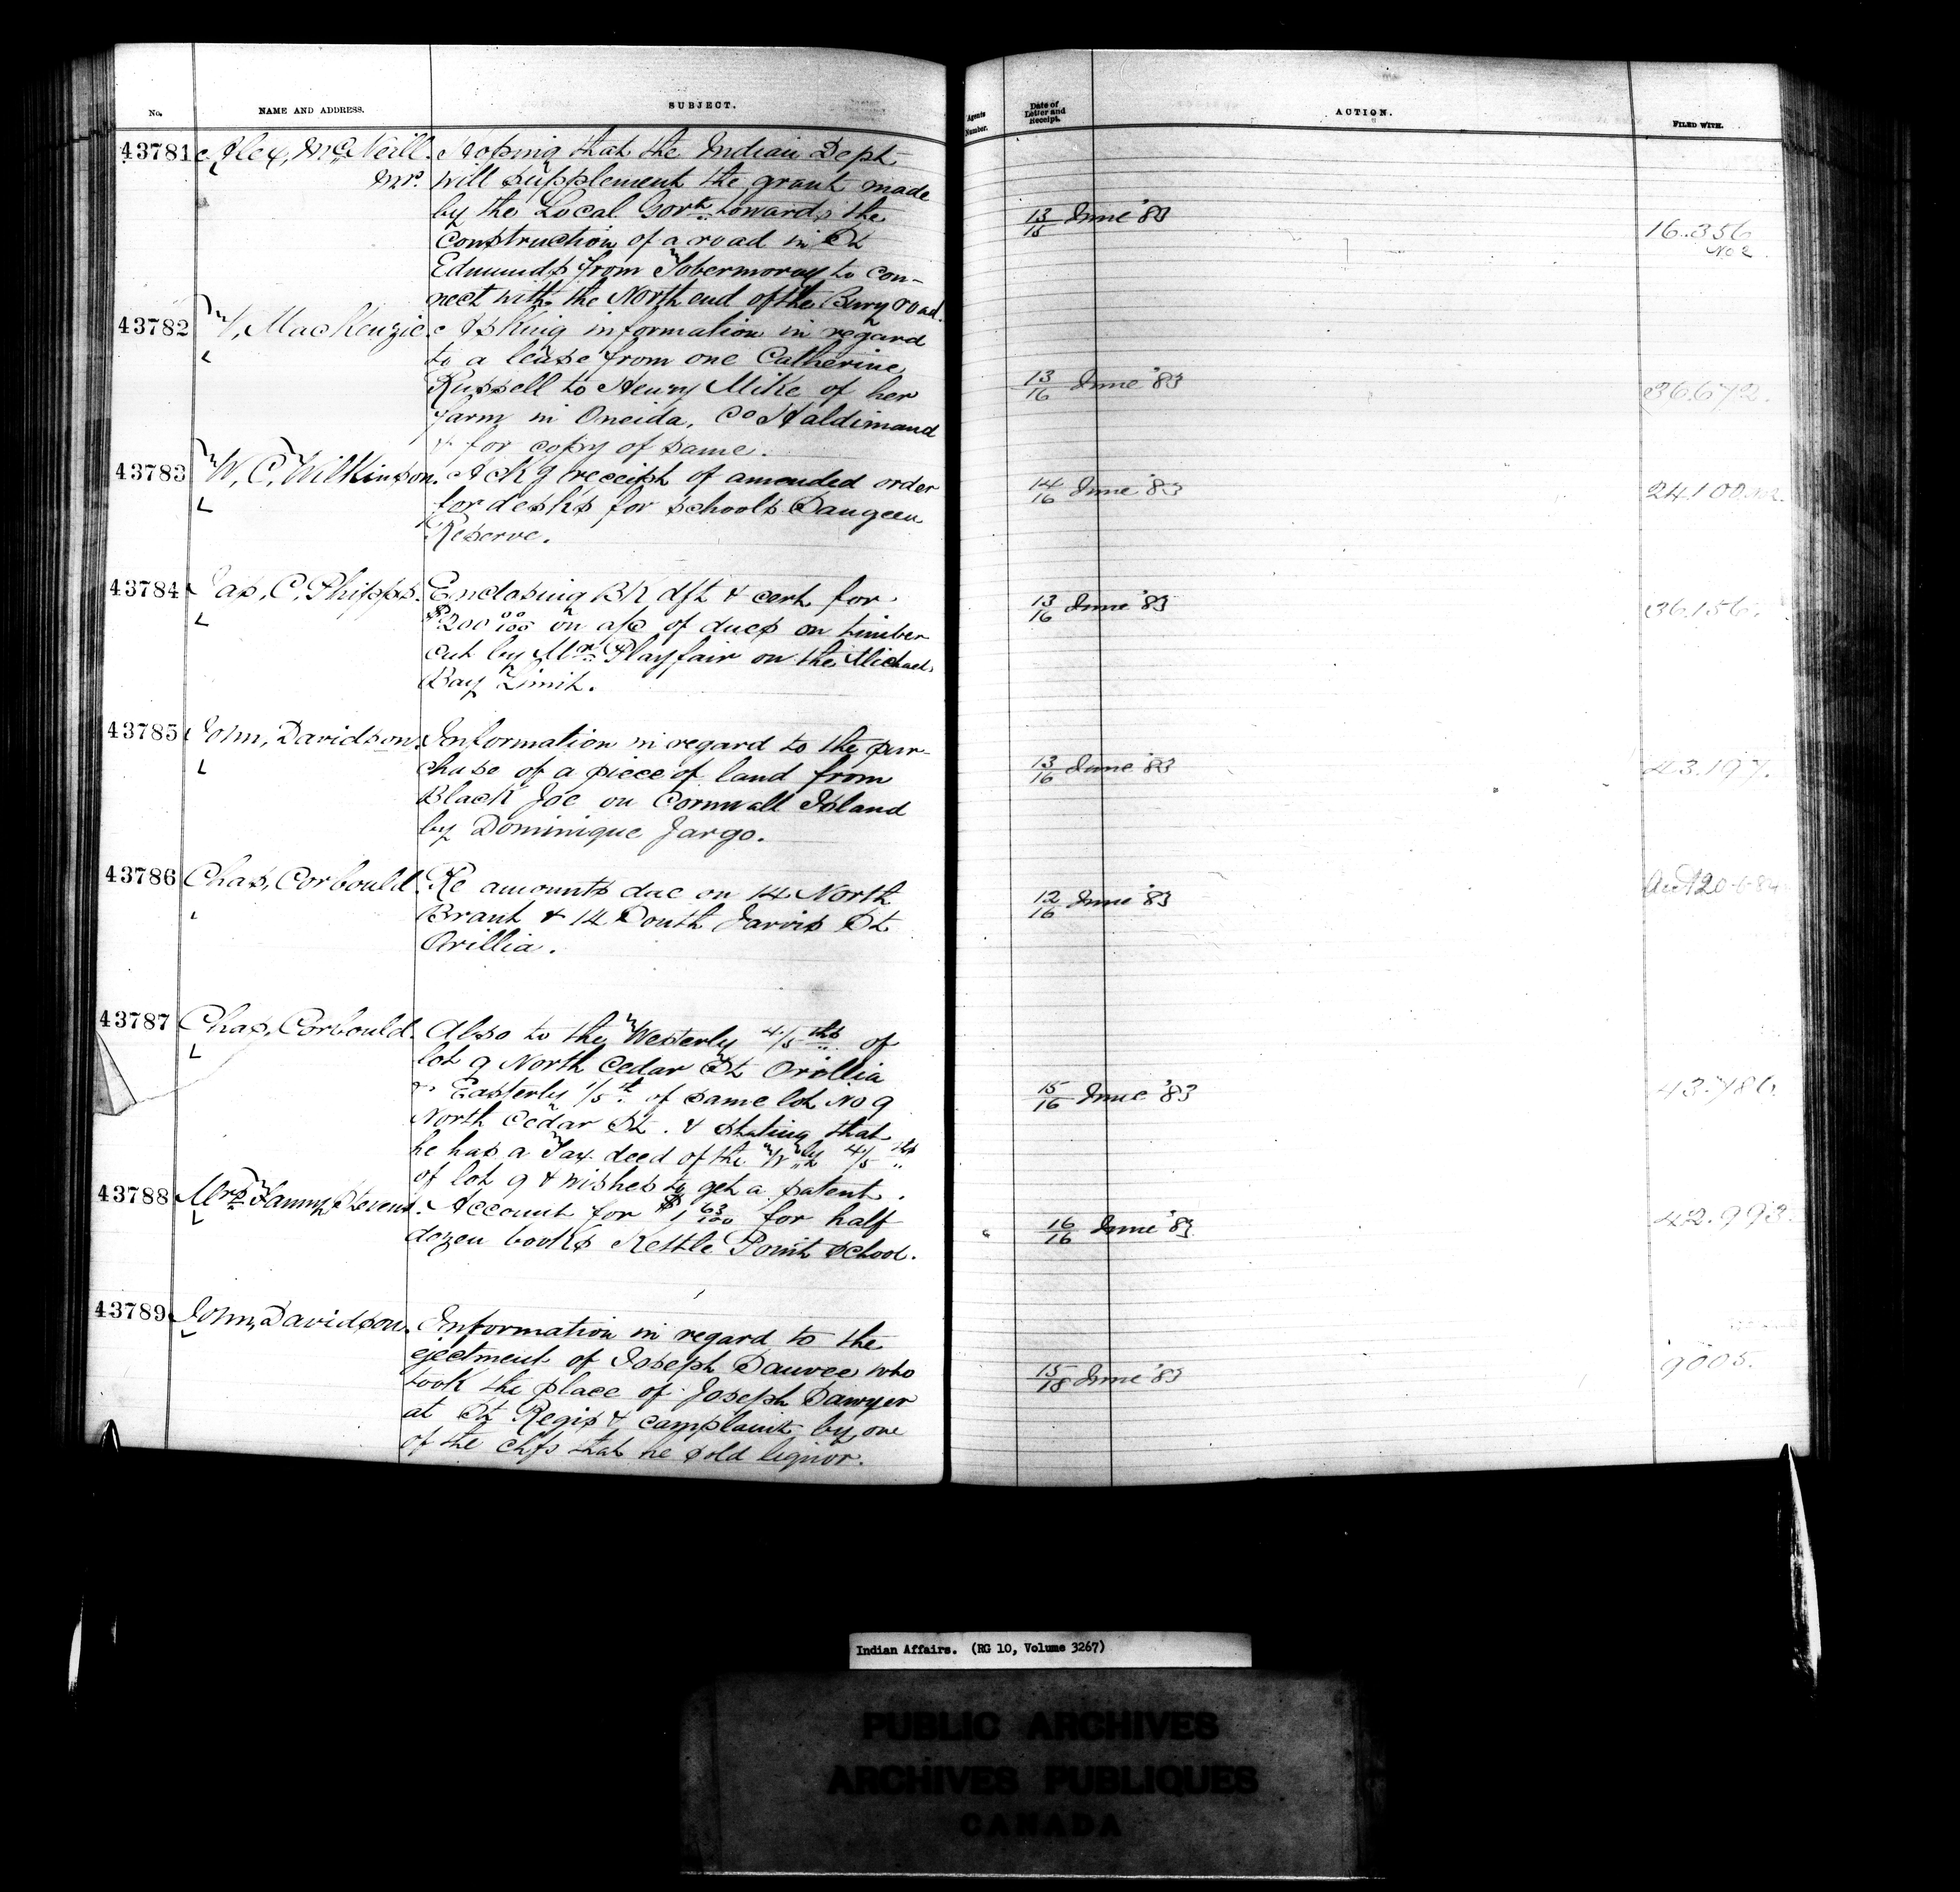 No. NAME AND ADDRESS. SUBJECT. Agents Number. Date of Letter and Receipt. ACTION. FILED WITH.
43781 Alex, McNeill. Hoping that the Indian Dept
Mr. will supplement the grant made
by the Local Govt towards the
Construction of a road in St
Edmunds from Tobermoray to con-
nect with the North end of the Bury road.
13/15 June '83
16.356
No 2
43782 MacKenzie. Asking information in regard
to a lease from one Catherine
Russell to Henry Mike of her
farm in Oneida, Co Haldimand
& for copy of same.
13/16 June '83
36.672.
43783 W, C, Wilkinson. Ackg receipt of amended order
for desks for schools Saugeen
Reserve.
14/16 June '83
24.100
43784 Jas, C, Phipps. Enclosing BK dft & cert for
$200 00/100 on a/c of dues on timber
cut by Mr Playfair on the Michael
Bay Limit.
13/16 June '83
36.156.
43785 John, Davidson. Information in regard to the pur-
chase of a piece of land from
Black Joe on Cornwall Island
by Dominique Jargo.
13/16 June '83
43.197.
43786 Chas, Corbould. Re amounts due on 14 North
Brant & 14 South Jarvis St
Orillia.
12/16 June '83
43787 Chas, Corbould. Also to the Westerly 4/5 ths of
lot 9 North Cedar St Orillia
& Easterly 1/5 th of same lot No 9
North Cedar St. & stating that
he has a Tax deed of the Wly 4/5 ths
of lot 9 & wishes to get a patent.
15/16 June '83
43.786
43788 Mrs Fanny Stevens. Account for $1 63/100 for half
dozen books Kettle Point School.
16/16 June '83
42.993.
43789 John, Davidson. Information in regard to the
ejectment of Joseph Sauvee who
took the place of Joseph Sawyer
at St Regis & complaint by one
of the chfs that he sold liquor.
15/18 June '83
9005.
Indian Affairs. (RG 10, Volume 3267)
PUBLIC ARCHIVES
ARCHIVES PUBLIQUES
CANADA